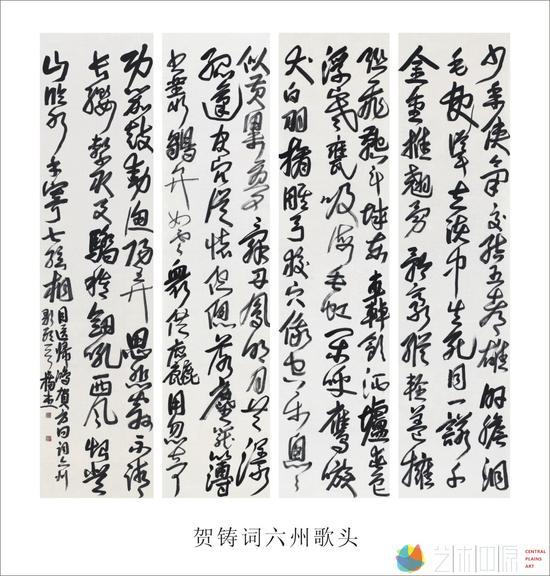 少年侠气交结五都雄肝胆洞
毛发耸立谈中生死同一诺千
金重推翘勇矜豪纵轻盖拥
联飞鞚斗城东轰饮酒垆春色
浮寒瓮吸海垂虹闲呼鹰嗾
犬白羽摘雕弓狡穴俄空乐匆匆
似黄粱梦辞丹凤明月共漾
孤蓬官冗从怀倥偬落尘笼簿
书丛鹖弁如云众供粗用忽奇
功笳鼓动渔阳弄思悲翁不请
长缨系取天骄种剑吼西风恨登
山临水手寄七弦桐
目送归鸿贺方回词六州
歌头
贺铸词六州歌头
艺术中原
CENTRAL
PLAINS
ART